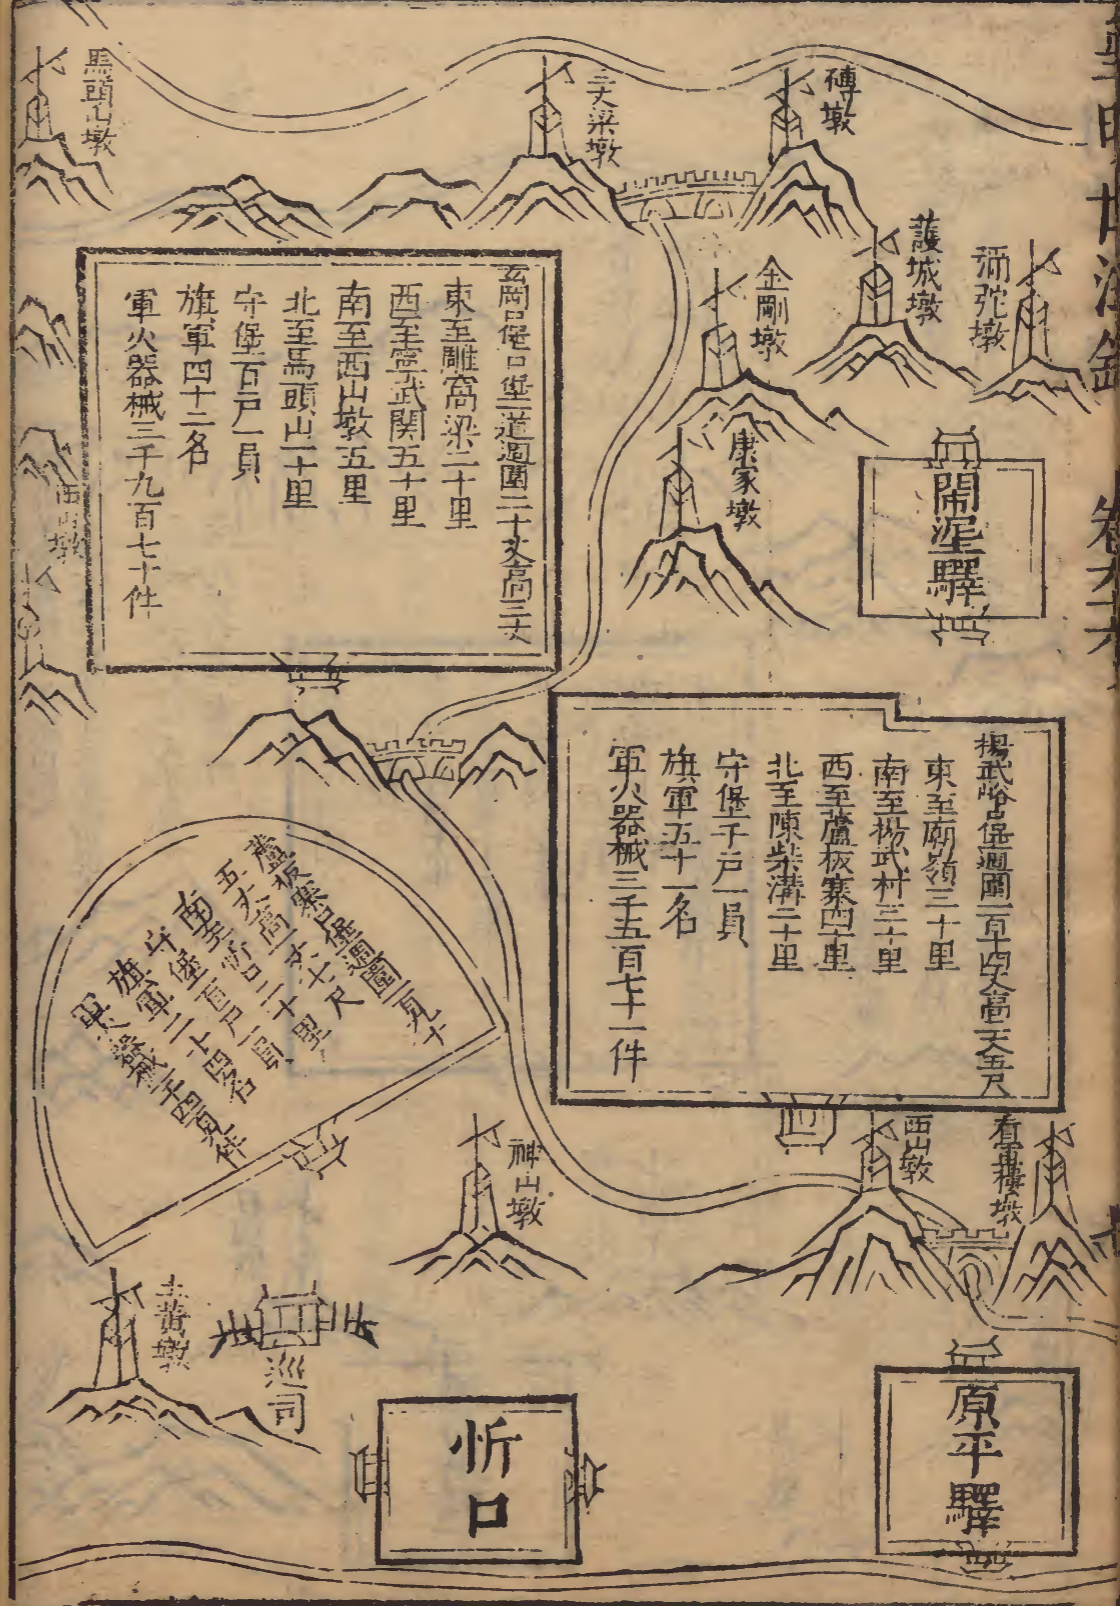 卷六
磚墩
三丈梁墩
馬頭山墩
彌陀墩
護城墩
金剛墩
康家墩
鬧泥驛
玄岡口堡口堡一道週圍二十丈高三丈
東至雕窩梁二十里
西至寧武関五十里
南至西山墩五里
北至馬頭山一十里
守堡百戸一員
旗軍四十二名
軍火器械三千九百七十件
西山墩
楊武峪口堡週圍一百十四丈高二丈五尺
東至廟嶺三十里
南至楊武村三十里
西至蘆板寨四十里
北至陳柴溝二十里
守堡千戸一員
旗軍五十一名
軍火器械三千五百七十一件
蘆板寨口堡週圍一百九十
五丈高一丈七尺
南至忻口二十里
守堡百戸一員
旗軍二十四名
軍火器械
看軍樓墩
西山墩
神山墩
土黃墩
巡司
原平驛
忻口